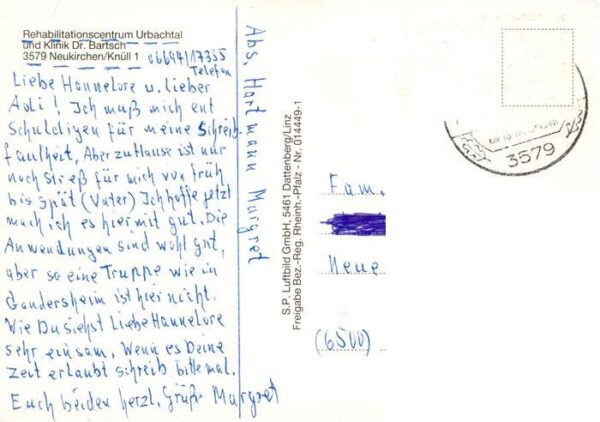 Rehabilitationscentrum Urbachtal
und Klinik Dr. Bartsch
3579 Neukirchen/Knüll 1 06694/17355
Telefon
Liebe Hannelore u. lieber
Adi! Ich muß mich ent
Schuldigen für meine Schreib-
faulheit, Aber zuHause ist nur
noch streß für mich von früh
bis spät (Vater) Ich hoffe jetzt
mach ich es hiermit gut. Die
Anwendungen sind wohl gut,
aber so eine Truppe wie in
Gandersheim ist hier nicht.
Wie Du siehst Liebe Hannelore
sehr einsam, Wenn es Deine
Zeit erlaubt schreib bitte mal.
Euch beiden herzl. Grüße Margret
Abs, Hartmann Margret
S.P. Luftbild GmbH, 5461 Dattenberg/Linz
Freigabe Bez.-Reg. Rheinh.-Pfalz - Nr. 014449-1
3579
Fam.
Neue
(6500)